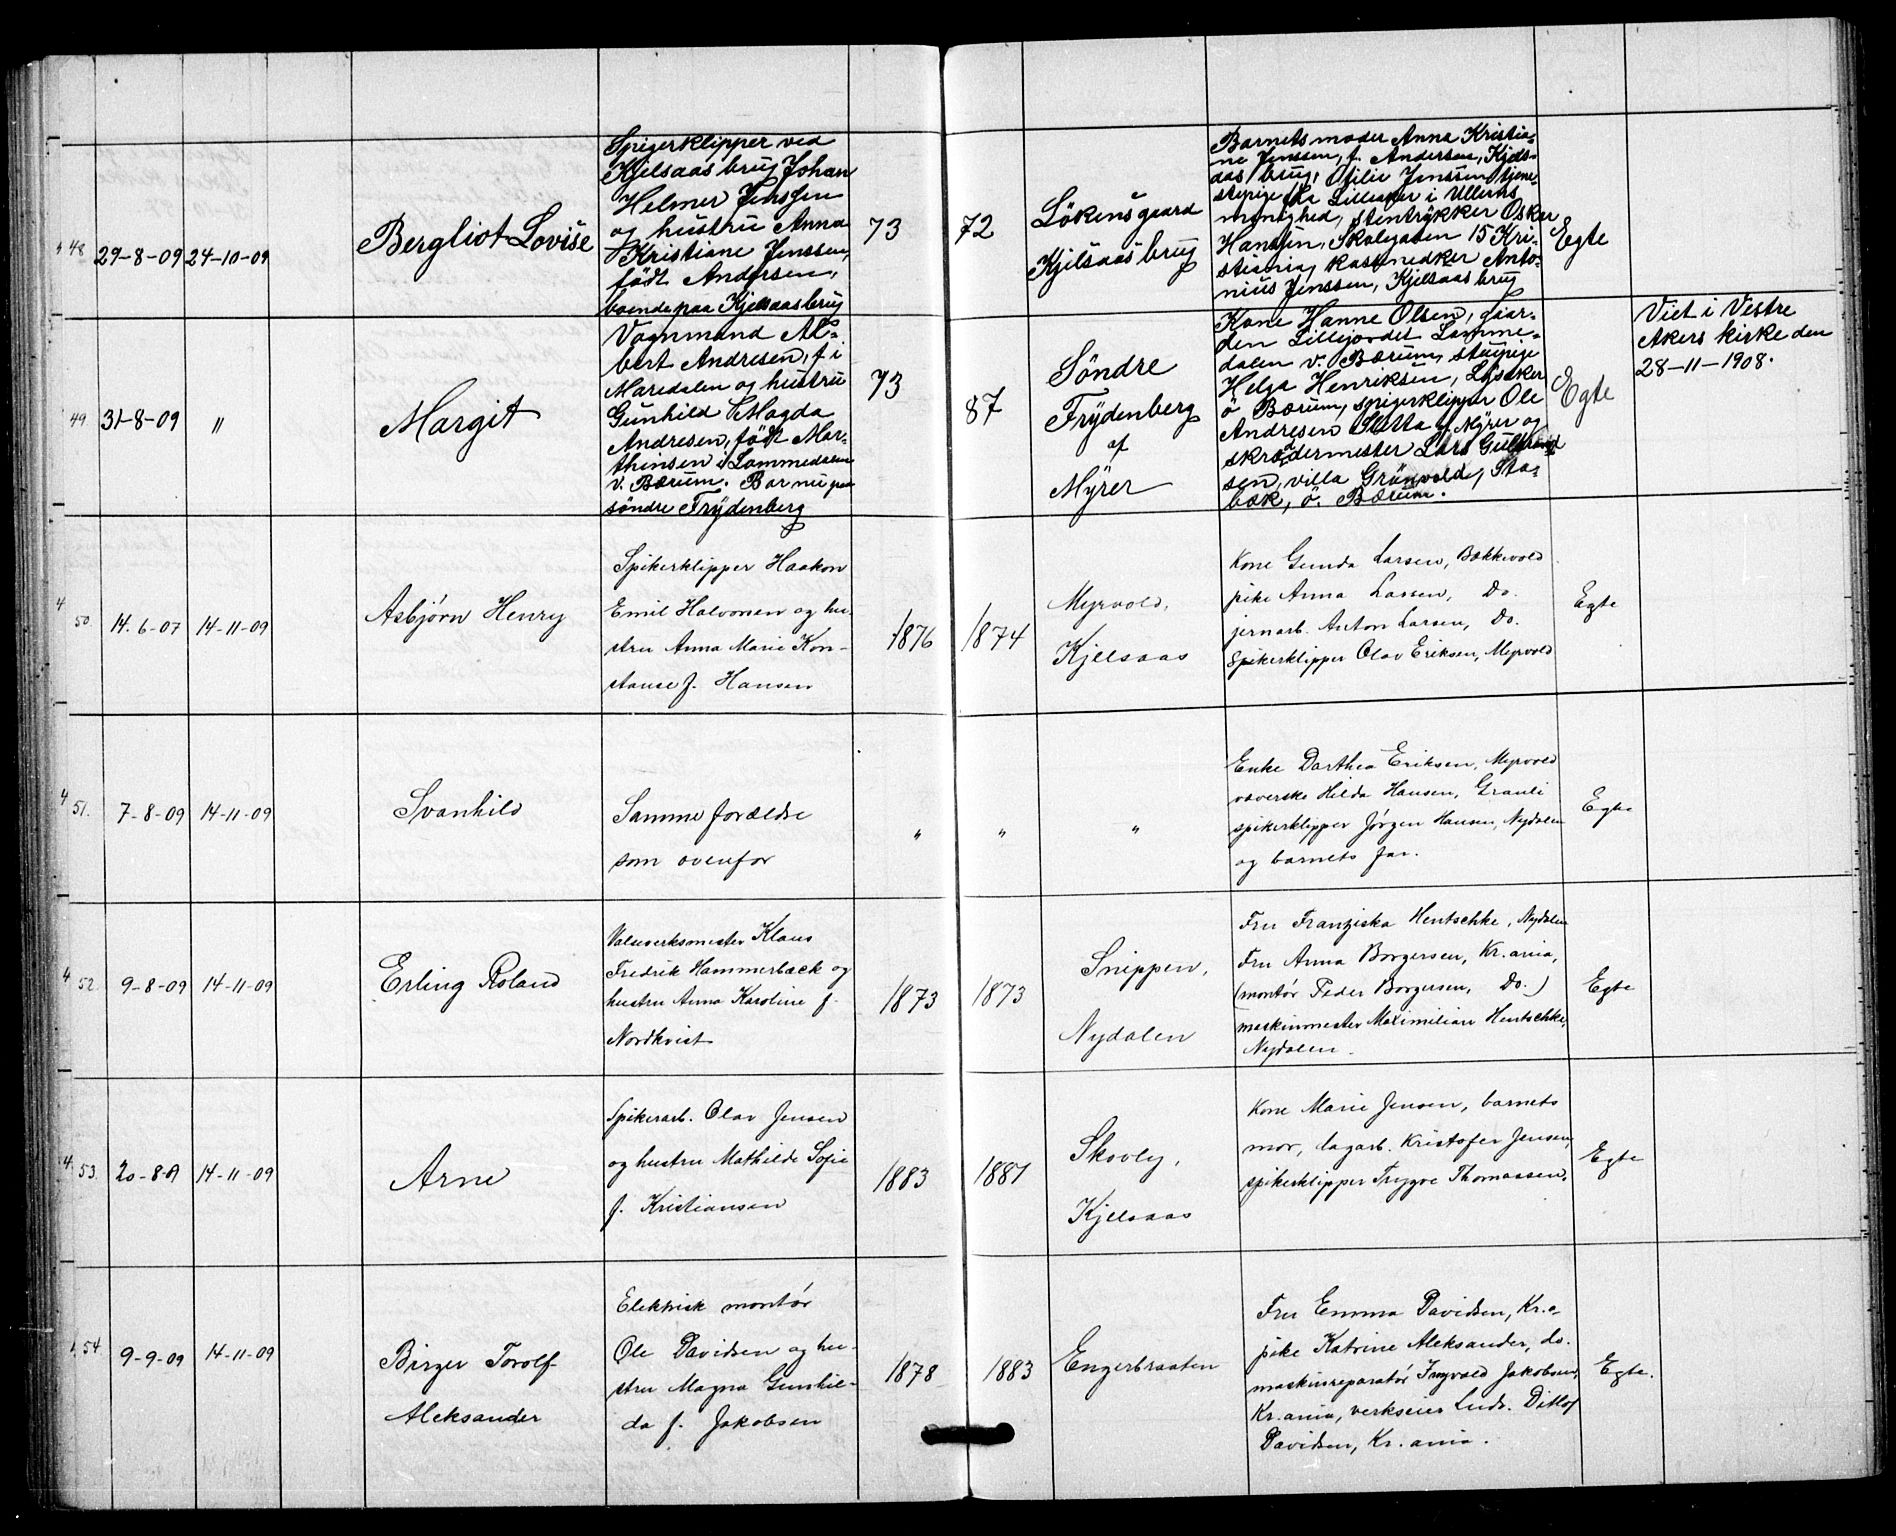 48
29-8-09
24-10-09
Bergliot Lovise
Spigerklipper ved
Kjelsaas brug Johan
Helmer Jenssen
og hustru Anna
Kristiane Jenssen,
født Andersen,
boende paa Kjelsaasbrug
73
72
Lökensgaard
Kjelsaas brug
Barnets moder Anna Kristia-
ne Jenssen, f. Andersen, Kjels-
aas brug, Otilie Jenssen tjene-
stepige fra Lilleaker i Ullerns
menighed, stentrykker Oskar
Hansen, Skolegaden 15 Kri-
stiania, kassnedker Anto-
nius Jenssen, Kjelsaas brug
Egte
49
31-8-09
"
Margit
Vognmand Al-
bert Andresen, f. i
Maredalen og hustru
Gunhild Magda
Andresen, født Mar-
thinsen i Lommedalen
v. Bærum. Bor nu paa
söndre Frÿdenberg
73
87
Söndre
Frÿdenberg
af
Mÿrer
Kone Hanne Olsen, gaar-
den Lillejordet Lomme-
dalen v. Bærum, stuepige
Helga Henriksen, Lysaker
ö. Bærum, spigerklipper Ole
Andresen Sletta af Mÿrer og
skrædermester Lars Gulbrand
sen, villa Grünvold, Sta-
bæk, ö. Bærum.
Egte
Viet i Vestre
Akers kirke den
28-11-1908.
4
50.
14.6-07
14-11-09
Asbjørn Henry
Spikerklipper Haakon
Emil Halvorsen og hu-
stru Anna Marie Kon-
stanse f. Hansen
1876
1874
Myrvold,
Kjelsaas
Kone Gunda Larsen, Bækkevold
pike Anna Larsen, Do.
jernarb. Anton Larsen, Do.
Spikerklipper Olav Eriksen, Myrvold
Egte
4
51.
7-8-09
14-11-09
Svanhild
Samme forældre
som ovenfor
"
"
"
Enke Dorthea Eriksen, Myrvold
væverske Hilda Hansen, Grauli
spikerklipper Jørgen Hansen, Nydalen
og barnets far.
Egte
4
52.
9-8-09
14-11-09
Erling Roland
Valseverksmester Klaus
Fredrik Hammerbæck og
hustru Anna Karoline f.
Nordkvist
1873
1873
Snippen,
Nydalen
Fru Franziska Hentschke, Nydalen
Fru Anna Borgersen, Kr.ania,
(montör Peder Borgersen, Do.)
maskinmester Maximilian Hentschke,
Nydalen.
Egte
4
53.
20-8-09
14-11-09
Arne
Spikerarb. Olav Jensen
og hustru Mathilde Sofie
f. Kristiansen
1883
1887
Skovly,
Kjelsaas
Kone Marie Jensen, barnets
mor, dagarb. Kristofer Jensen,
spikerklipper Trygve Thomassen.
Egte
54
9-9-09
14-11-09
Birger Torolf
Aleksander
Elektrisk montör
Ole Davidsen og hu-
stru Magna Gunhil-
da f. Jakobsen
1878
1883
Engerbraaten
Fru Emma Davidsen, Kr.a
pike Katrine Aleksander, do.
maskinreparatör Ingvald Jakobsen,
Kr.ania, verkseier Ludv. Ditlef
Davidsen, Kr.ania.
Egte.